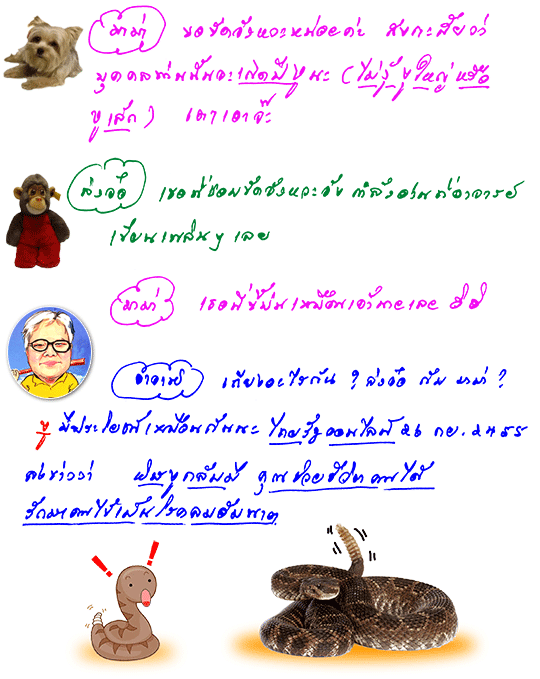 มาม่า ขอขัดจังหวะหน่อยค่ะ สงกะสัยว่า
บุคคลท่านนั้นจะเกิดปีงูนะ (ไม่รู้งูใหญ่หรือ
งูเล็ก) เดาเอาจ๊ะ
ส่งจ๋อ เธอนี่ชอบขัดจังหวะจัง กำลังอ่านที่อาจารย์
เขียนเพลินๆ เลย
มาม่า เธอนี่ขี้บ่นเหมือนเจ้านายเลย ฮิฮิ
อาจารย์ เถียงอะไรกัน ? ส่งจ๋อ กับ มาม่า ?
งู มีประโยชน์เหมือนกันนะ ไทยรัฐออนไลน์ 26 กย. 2455
ลงข่าวว่า พิษงูกลับมี คุณช่วยชีวิตคนได้
รักษาคนไข้เป็นโรคลมอัมพาต